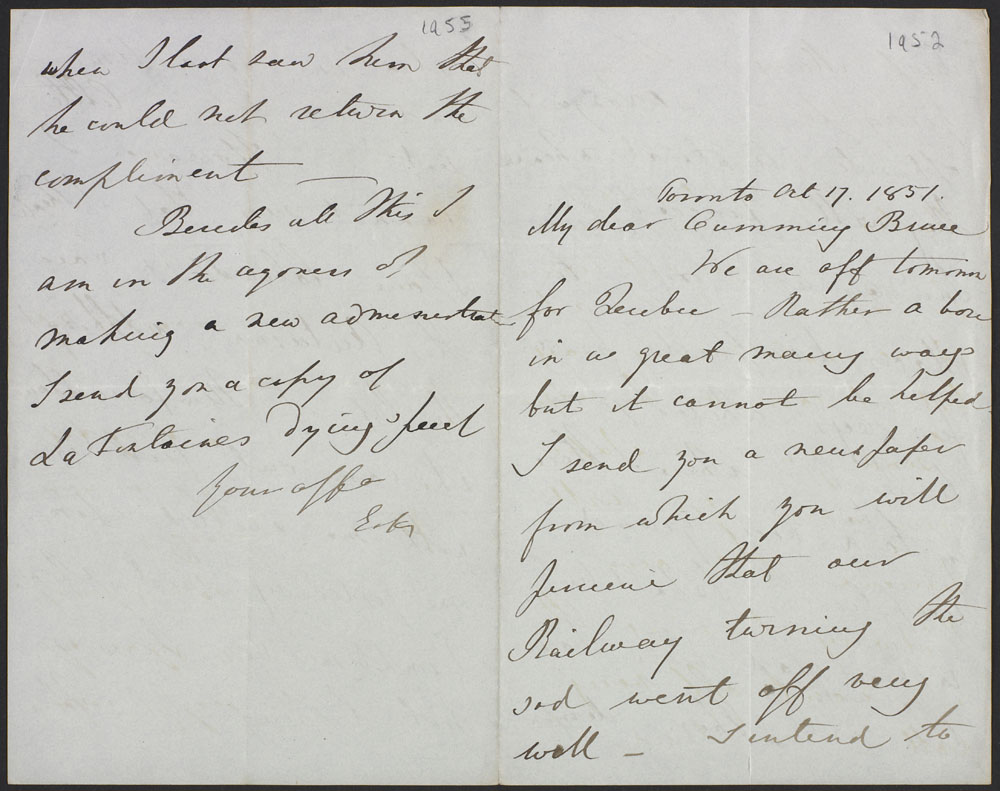 1955
when I last saw him that
he could not return the
compliment —
Besides all this I
am in the agonies of
making a new administrat
I send you a copy of
La Fontaines dying speech
Your affe
E & K
1952
Toronto Oct 17. 1851.
My dear Cumming Bruce
We are off tomorrow
for Quebec — Rather a bore
in a great many ways
but it cannot be helped
I send you a newspaper
from which you will
perceive that our
Railway turning the
sod went off very
well — I intend to